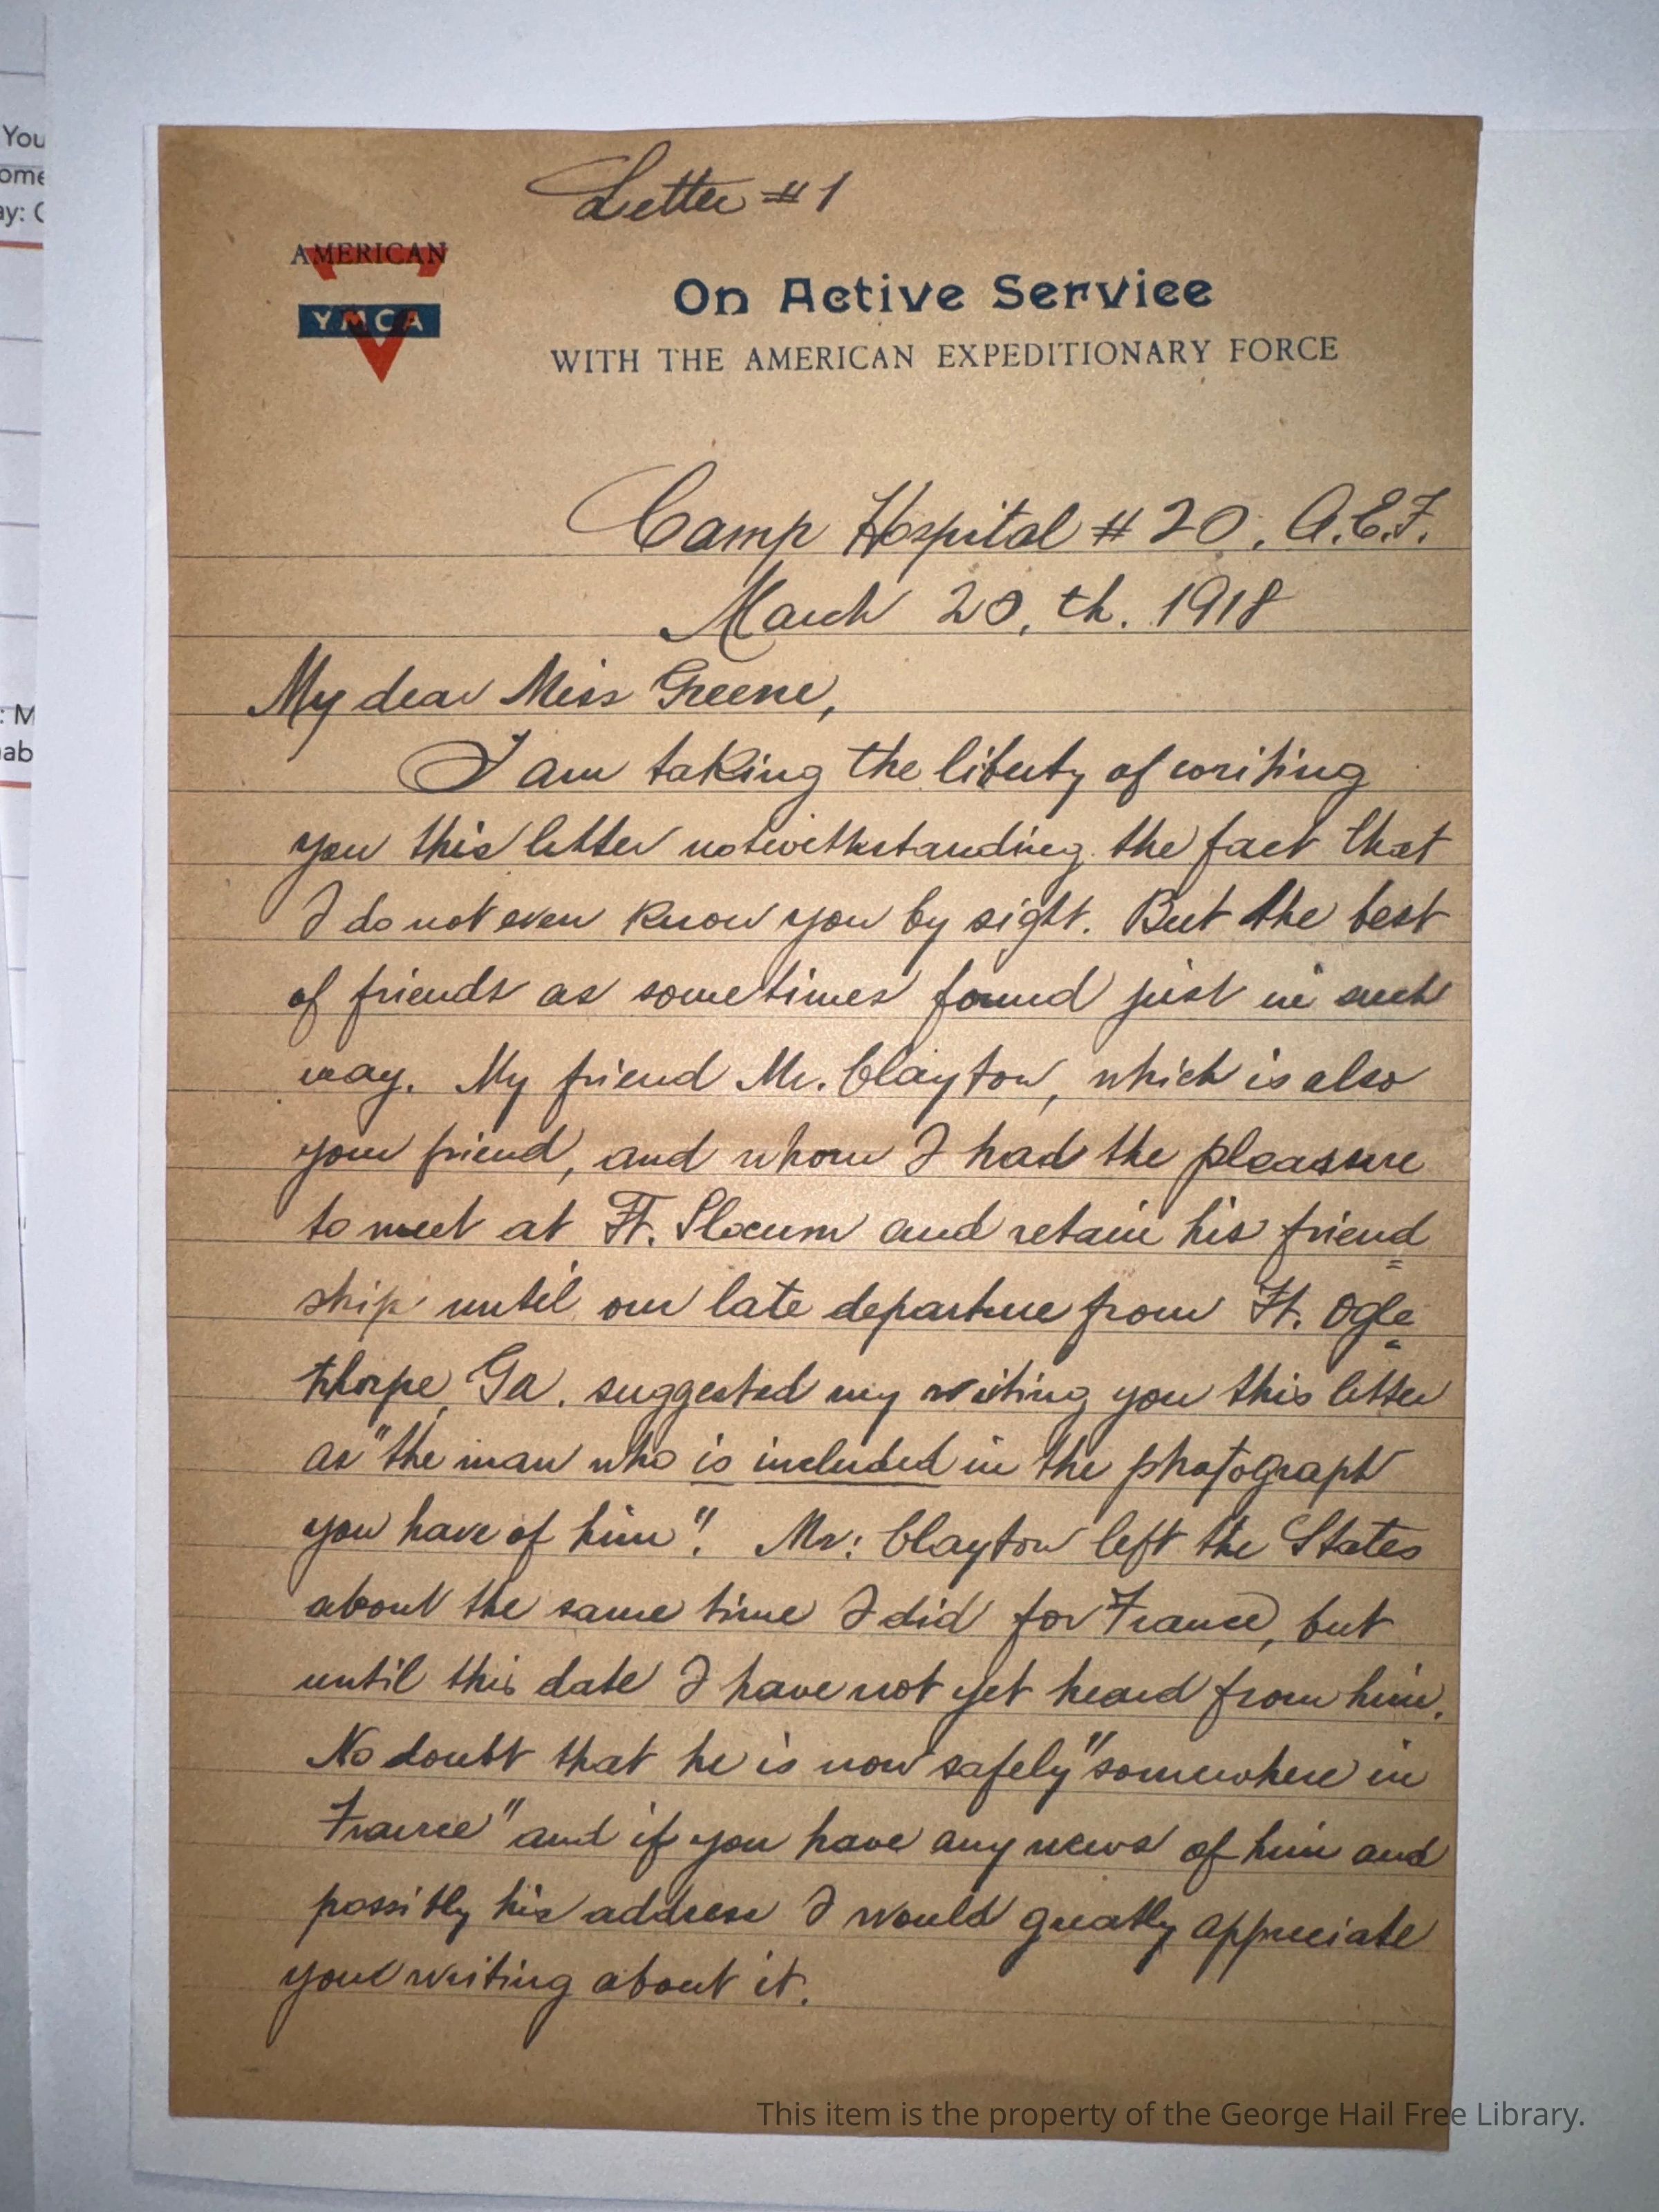 You
ome
ay: C
: M
nab
Letter #1
AMERICAN
YMCA
On Active Service
WITH THE AMERICAN EXPEDITIONARY FORCE
Camp Hospital #20. A.E.F.
March 20, th. 1918
My dear Miss Greene,
I am taking the liberty of writing
you this letter notwithstanding the fact that
I do not even know you by sight. But the best
of friends as sometimes found just in such
way. My friend Mr. Clayton, which is also
your friend, and whom I had the pleasure
to meet at Ft. Slocum and retain his friend=
ship until our late departure from Ft. Ogle=
thorpe, Ga. suggested my writing you this letter
as "the man who is included in the photograph
you have of him". Mr: Clayton left the States
about the same time I did for France, but
until this date I have not yet heard from him.
No doubt that he is now safely "somewhere in
France" and if you have any news of him and
possibly his address I would greatly appreciate
your writing about it.
This item is the property of the George Hail Free Library.